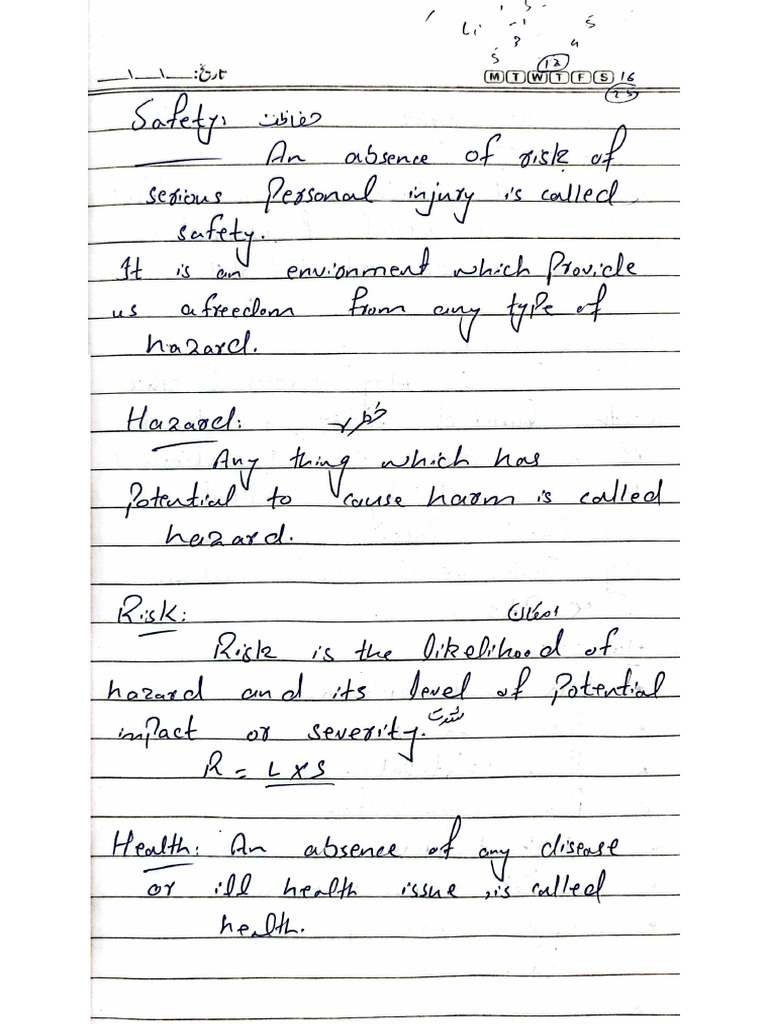 تاریخ: __ا__ا__
12
M T W T F S 16
25
Safety: حفاظت
An absence of risk of
serious Personal injury is called
safety.
It is an envionment which Provide
us a freedom from any type of
hazard.
Hazard: خطرہ
Any thing which has
Potential to cause harm is called
hazard.
Risk: امکان
Risk is the likelihood of
hazard and its level of Potential
impact or severity. شدت
R = L x S
Health: An absence of any disease
or ill health issue, is called
health.